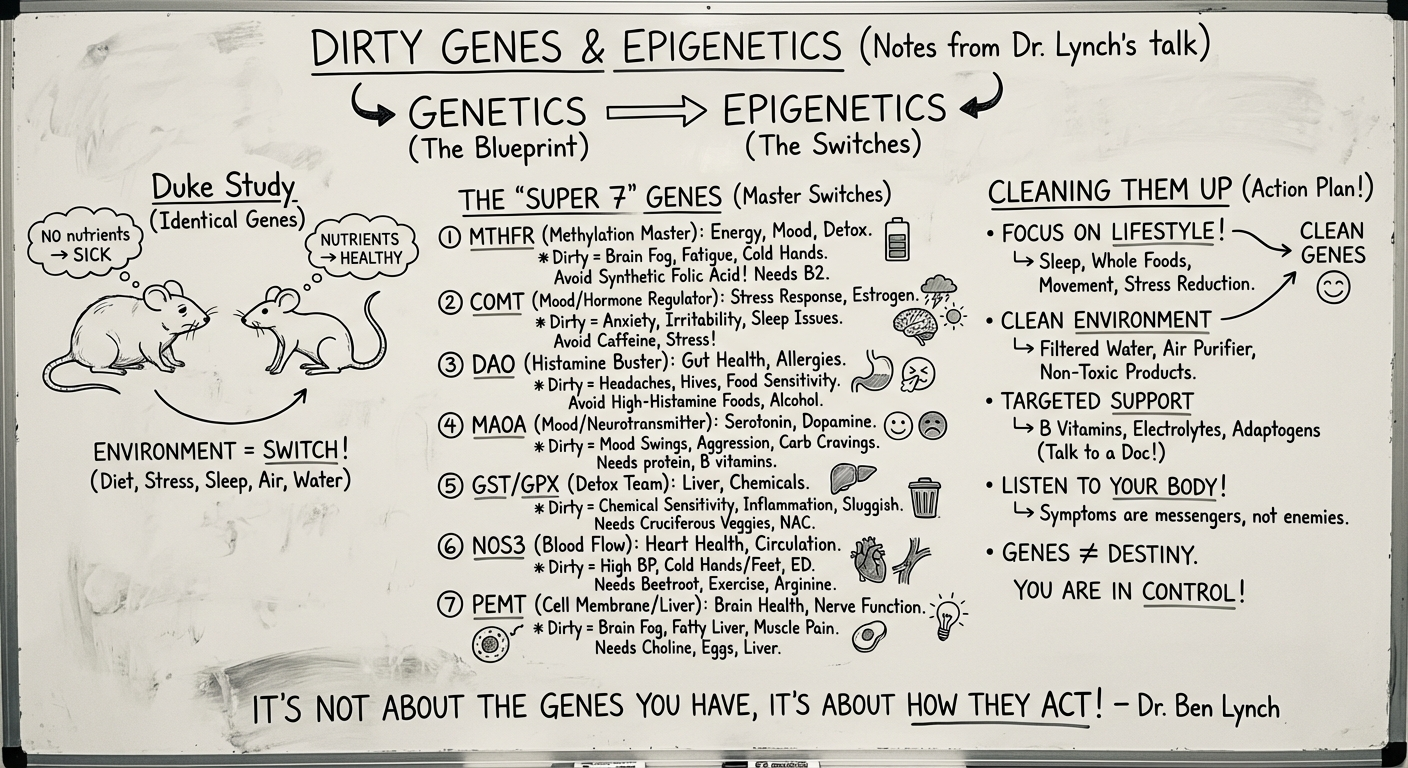 DIRTY GENES & EPIGENETICS (Notes from Dr. Lynch's talk)
GENETICS
(The Blueprint)
EPIGENETICS
(The Switches)
Duke Study
(Identical Genes)
NO nutrients
→ SICK
NUTRIENTS
→ HEALTHY
ENVIRONMENT = SWITCH!
(Diet, Stress, Sleep, Air, Water)
THE "SUPER 7" GENES (Master Switches)
① MTHFR (Methylation Master): Energy, Mood, Detox.
* Dirty = Brain Fog, Fatigue, Cold Hands.
Avoid Synthetic Folic Acid! Needs B2.
② COMT (Mood/Hormone Regulator): Stress Response, Estrogen.
* Dirty = Anxiety, Irritability, Sleep Issues.
Avoid Caffeine, Stress!
③ DAO (Histamine Buster): Gut Health, Allergies.
* Dirty = Headaches, Hives, Food Sensitivity.
Avoid High-Histamine Foods, Alcohol.
④ MAOA (Mood/Neurotransmitter): Serotonin, Dopamine.
* Dirty = Mood Swings, Aggression, Carb Cravings.
Needs protein, B vitamins.
⑤ GST/GPX (Detox Team): Liver, Chemicals.
* Dirty = Chemical Sensitivity, Inflammation, Sluggish.
Needs Cruciferous Veggies, NAC.
⑥ NOS3 (Blood Flow): Heart Health, Circulation.
* Dirty = High BP, Cold Hands/Feet, ED.
Needs Beetroot, Exercise, Arginine.
⑦ PEMT (Cell Membrane/Liver): Brain Health, Nerve Function.
* Dirty = Brain Fog, Fatty Liver, Muscle Pain.
Needs Choline, Eggs, Liver.
CLEANING THEM UP (Action Plan!)
• FOCUS ON LIFESTYLE!
↳ Sleep, Whole Foods,
Movement, Stress Reduction.
CLEAN
GENES
• CLEAN ENVIRONMENT
↳ Filtered Water, Air Purifier,
Non-Toxic Products.
• TARGETED SUPPORT
↳ B Vitamins, Electrolytes, Adaptogens
(Talk to a Doc!)
• LISTEN TO YOUR BODY!
↳ Symptoms are messengers, not enemies.
• GENES ≠ DESTINY.
YOU ARE IN CONTROL!
IT'S NOT ABOUT THE GENES YOU HAVE, IT'S ABOUT HOW THEY ACT! – Dr. Ben Lynch